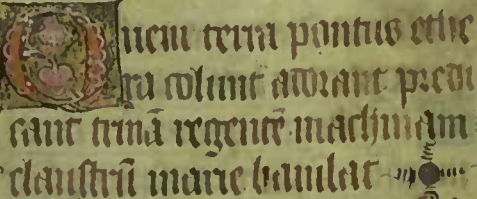 Quem terra pontus ethe
ra colunt adorant predi
cant trinā regentē machinam
claustrū marie baiulat